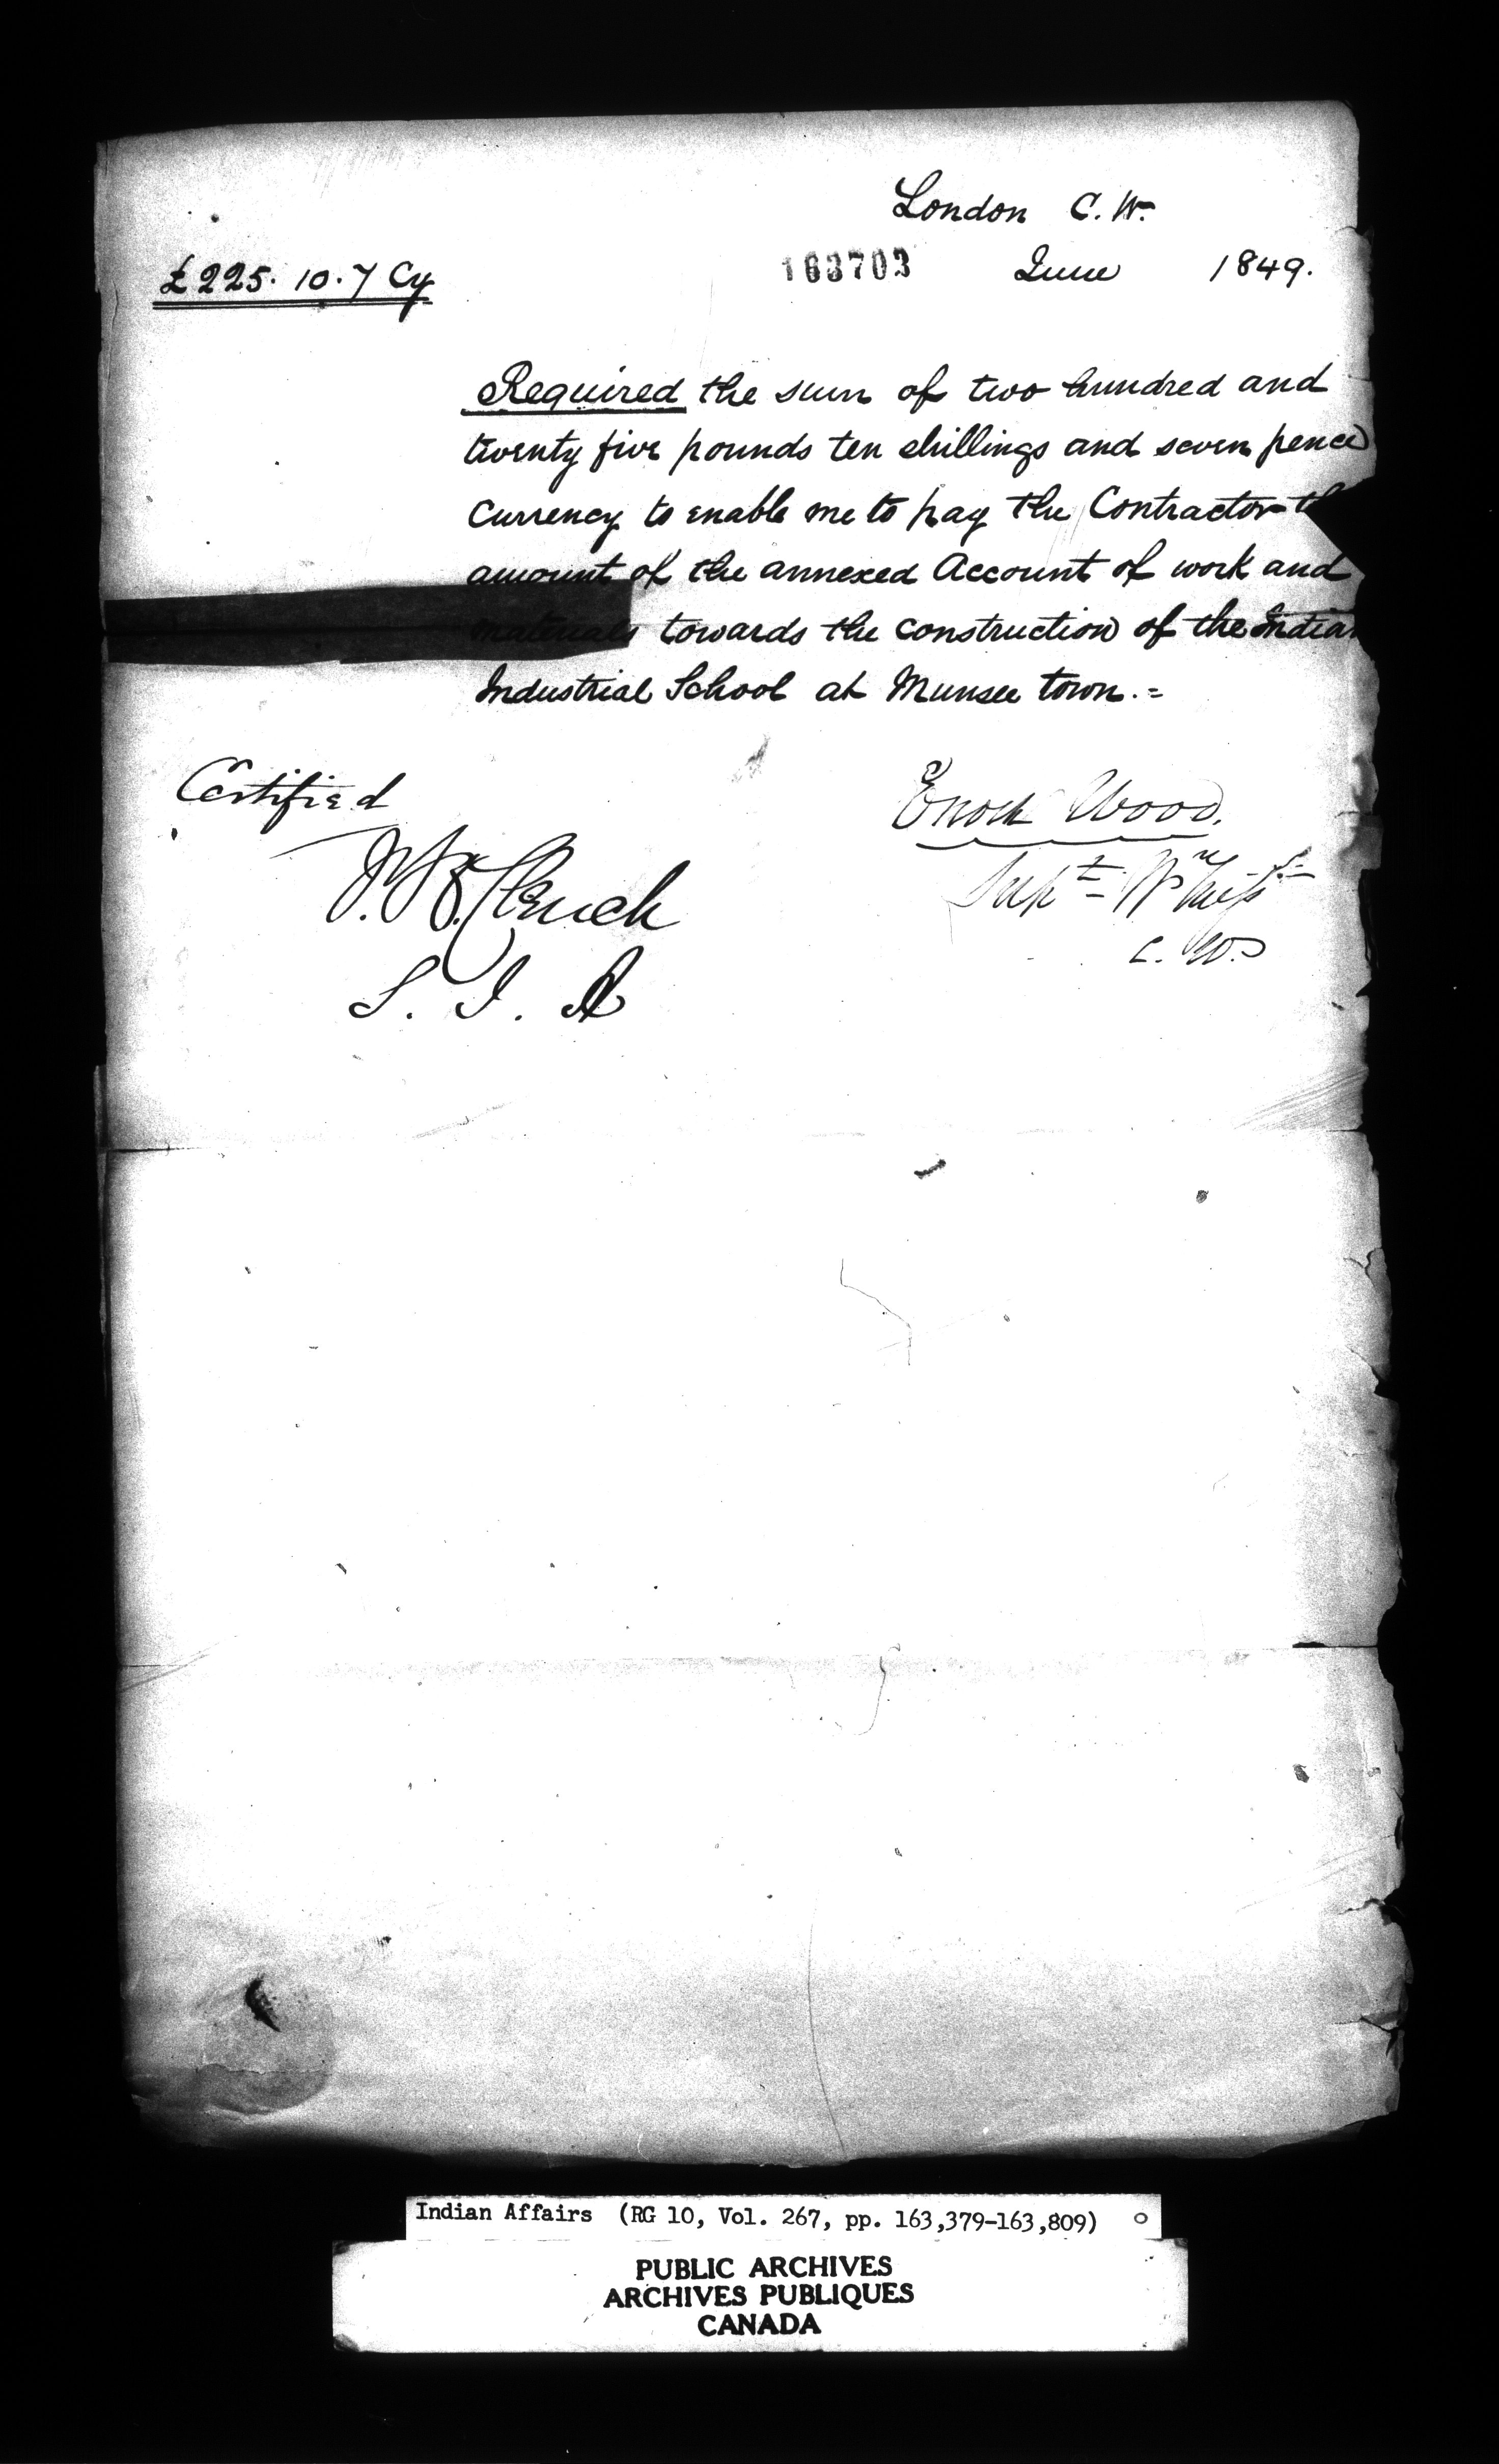 London C. W.
£225. 10. 7 Cy
163703 June 1849.
Required the sum of two hundred and
twenty five pounds ten shillings and seven pence
Currency to enable me to pay the Contractor
amount of the annexed Account of work and
materials towards the construction of the Indian
Industrial School at Munsee town.=
Certified
Enoch Wood.
J. B. Clench
Supt W. Miss
C. W.
S. I. A
Indian Affairs (RG 10, Vol. 267, pp. 163,379-163,809)
PUBLIC ARCHIVES
ARCHIVES PUBLIQUES
CANADA